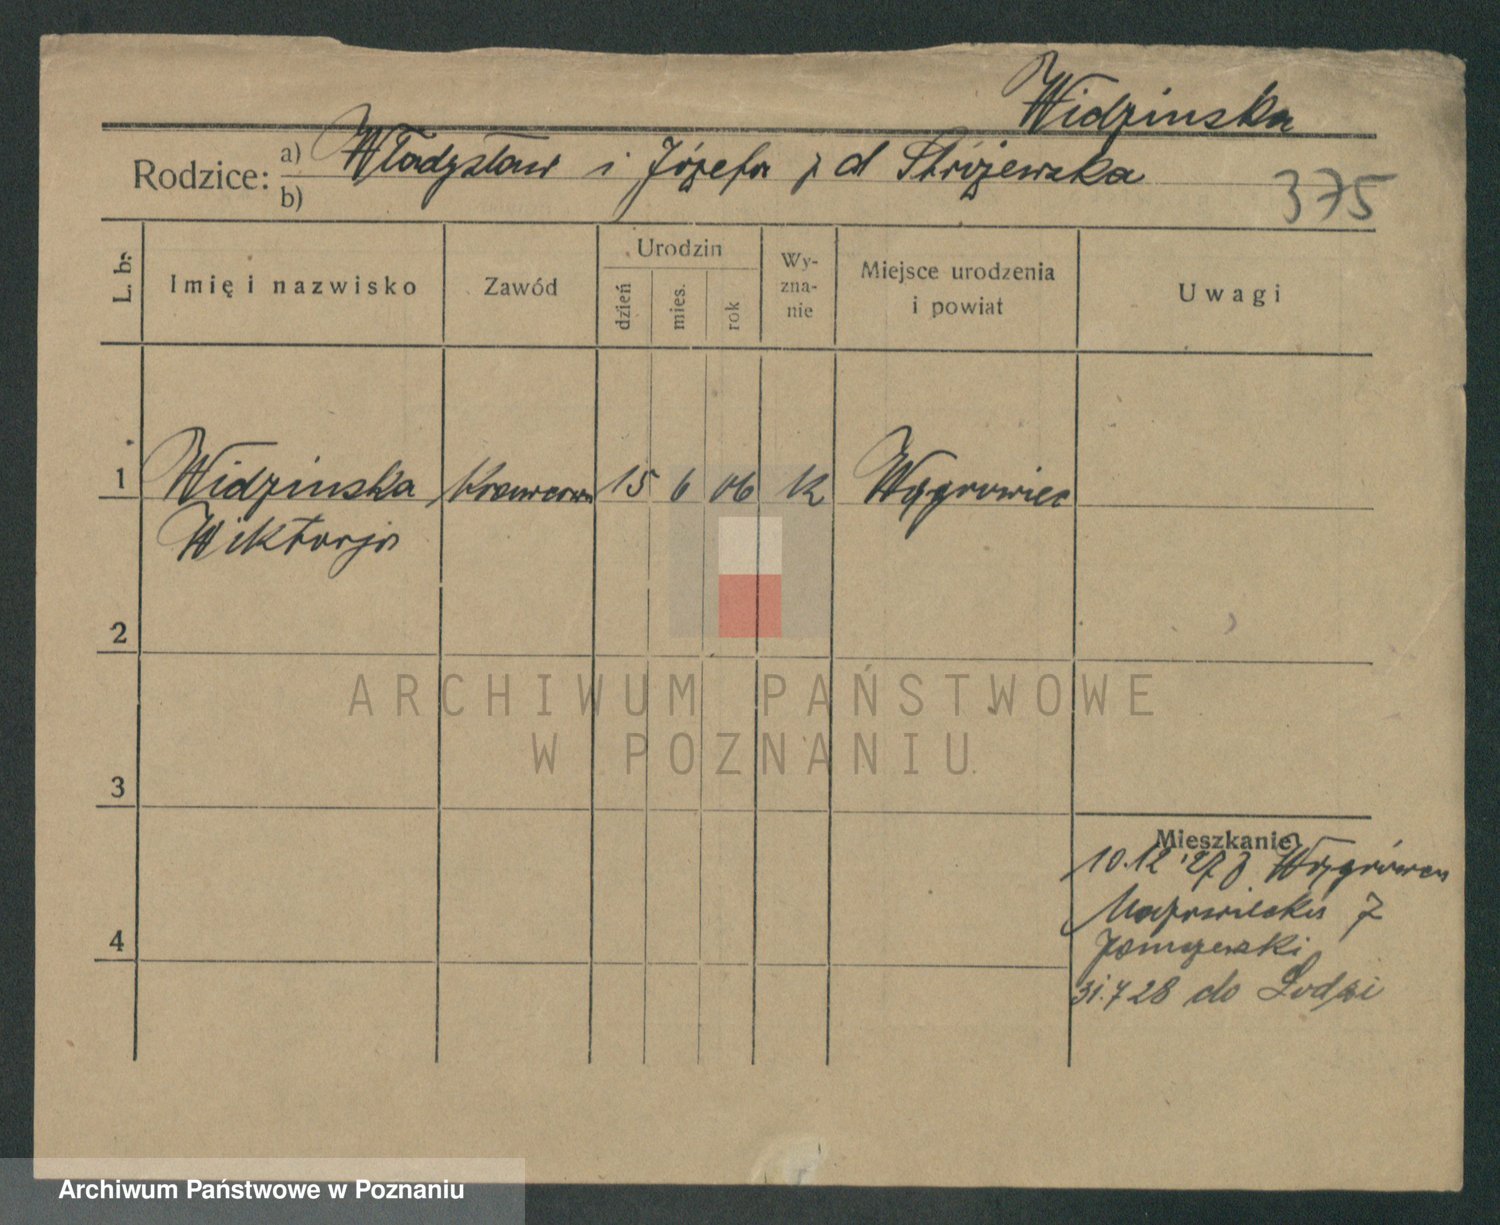 Widzinska
Rodzice: a) Władysław i Józefa z d Stróżewska
b)
375
L. b.
Imię i nazwisko
Zawód
Urodzin
dzień
mies.
rok
Wy-
zna-
nie
Miejsce urodzenia
i powiat
Uwagi
1 Widzinska Krawcowa 15 6 06 K Wągrowiec
Wiktorja
2
3
4
Mieszkanie
10.12.27 z Wągrówca
Mazowiecka 7
31.7 28 do Lodzi
ARCHIWUM PAŃSTWOWE
W POZNANIU
Archiwum Państwowe w Poznaniu